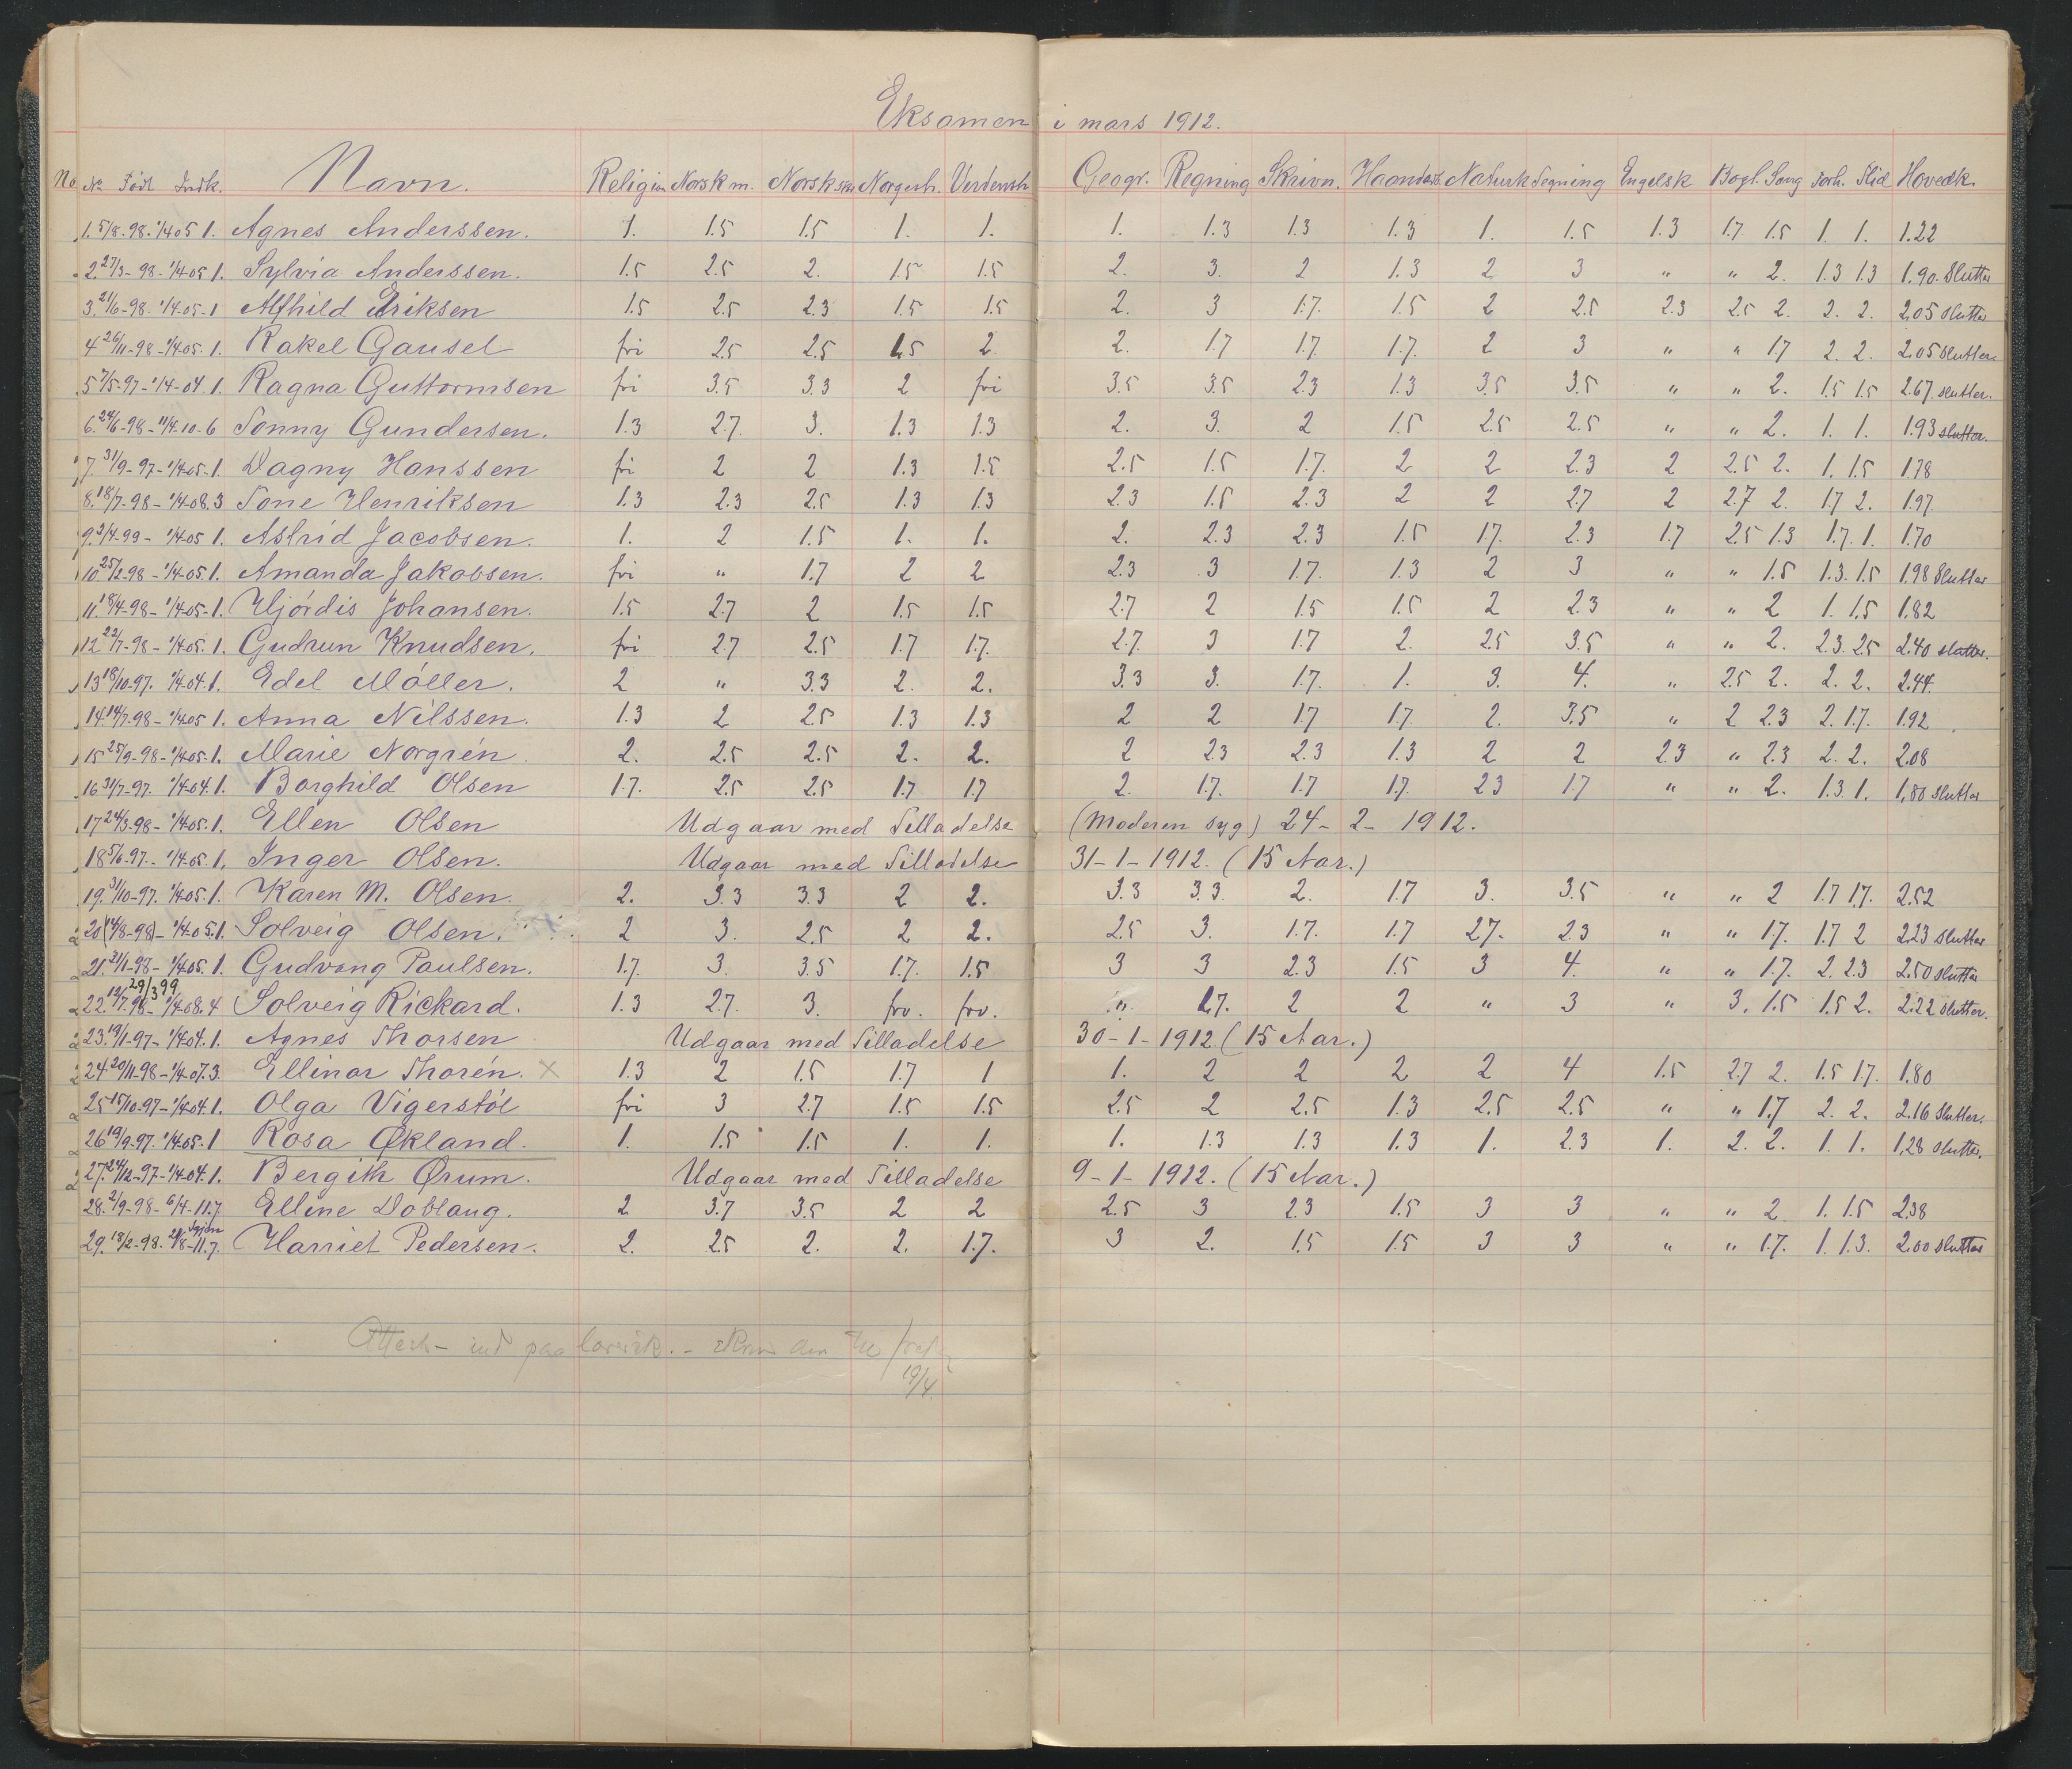 Eksamen i mars 1912.
No No Född Indk. Navn. Religion Norsk m. Norsk skr Norgesh. Verdensh Geogr. Regning Skrivn. Haandarb. Naturk Tegning Engelsk Bogl. Sang Forh. Flid Hovedk.
1. 5/8-98. 1/4 05 1. Agnes Anderssen. 1. 1.5 1.5 1. 1. 1. 1.3 1.3 1.3 1. 1.5 1.3 1.7 1.5 1. 1. 1.22
2. 27/3-98-1/4-05 1. Sylvia Anderssen. 1.5 2.5 2. 1.5 1.5 2. 3. 2 1.3 2 3 " " 2. 1.3 1.3 1.90. Slutter
3. 21/6-98. 1/4-05-1 Alfhild Eriksen 1.5 2.5 2.3 1.5 1.5 2. 3 1.7. 1.5 2 2.5 2.3 2.5 2. 2. 2. 2.05 slutter
4 26/11-98-1/4-05. 1. Rakel Gausel fri 2.5 2.5 1.5 2. 2. 1.7 1.7. 1.7. 2 3 " " 1.7 2. 2. 2.05 slutter.
5 7/5-97-1/4-04. 1. Ragna Guttormsen fri 3.5 3.3 2 fri 3.5 3.5 2.3 1.3 3.5 3.5 " " 2. 1.5 1.5 2.67. slutter.
6. 24/6-98-11/4-10-6 Sonny Gundersen. 1.3 2.7. 3. 1.3 1.3 2. 3. 2 1.5 2.5 2.5 " " 2. 1. 1. 1.93 slutter.
7. 31/9-97-1/4-05-1. Dagny Hanssen fri 2 2 1.3 1.5 2.5 1.5 1.7. 2 2 2.3 2 2.5 2. 1. 1.5 1.78
8. 18/7-98-1/4-08. 3 Tone Henriksen 1.3 2.3 2.5 1.3 1.3 2.3 1.5 2.3 2 2 2.7 2 2.7 2. 1.7 2. 1.97.
9. 2/4-99- 1/4 05 1. Astrid Jacobsen. 1. 2 1.5 1. 1. 2. 2.3 2.3 1.5 1.7. 2.3 1.7 2.5 1.3 1.7. 1. 1.70
10. 25/2-98-1/4-05. 1. Amanda Jakobsen. fri " 1.7 2 2 2.3 3 1.7. 1.3 2 3 " " 1.5 1.3. 1.5 1.98 Slutter
11. 18/4-98-1/4-05-1. Hjördis Johansen. 1.5 2.7 2 1.5 1.5 2.7 2 1.5 1.5 2 2.3 " " 2 1. 1.5 1.82
12 22/7-98-1/4-05. 1. Gudrun Knudsen. fri 2.7 2.5 1.7 1.7. 2.7. 3 1.7 2. 2.5 3.5 " " 2. 2.3. 2.5 2.40 slutter.
13 18/10-97. 1/4-04. 1. Edel Möller. 2 " 3.3 2. 2. 3.3 3. 1.7. 1. 3. 4. " 2.5 2. 2. 2. 2.44.
14 14/7-98-1/4 05 1. Anna Nilssen. 1.3 2 2.5 1.3 1.3 2 2 1.7 1.7. 2. 3.5 " 2 2.3 2. 1.7. 1.92
15 25/9-98-1/4-05-1. Marie Norgrén. 2. 2.5 2.5 2. 2. 2 2.3 2.3 1.3 2 2 2.3 " 2.3 2. 2. 2.08
16 31/7-97. 1/4-04. 1. Borghild Olsen 1.7. 2.5 2.5 1.7 1.7 2. 1.7. 1.7 1.7. 2.3 1.7 " " 2. 1.3. 1. 1,80 slutter
17 24/3-98-1/4-05-1. Ellen Olsen Udgaar med Tilladelse (Moderen syg) 24-2-1912.
18 5/6-97.-1/4-05. 1. Inger Olsen. Udgaar med Tilladelse 31-1-1912. (15 Aar.)
19. 31/10-97. 1/4 05. 1. Karen M. Olsen. 2. 3.3 3.3 2 2. 3.3 3.3. 2. 1.7 3. 3.5 " " 2 1.7 1.7. 2.52
20 (14/8-98)-1/4-05. 1. Solveig Olsen. 2 3. 2.5 2 2. 2.5 3. 1.7. 1.7 2.7. 2.3 " " 1.7. 1.7 2 2.23 slutter
21. 21/1-98-1/4 05. 1. Gudvang Paulsen. 1.7. 3. 3.5 1.7. 1.5 3 3 2.3 1.5 3 4. " " 1.7. 2. 2.3 2.50 slutter
29/3 99.
22. 12/7-98-1/4-08. 4 Solveig Rickard. 1.3 2.7. 3. frv. frv. " 2.7. 2 2 " 3 " 3. 1.5 1.5 2. 2.22 slutter.
23. 19/1-97-1/4 04. 1. Agnes Thorsen Udgaar med Tilladelse 30-1-1912 (15 Aar.)
24 20/11-98-1/4-07. 3. Ellinor Thorén. × 1.3 2 1.5 1.7 1 1. 2 2 2 2 4 1.5 2.7 2. 1.5 1.7. 1.80
25 15/10-97-1/4 04. 1. Olga Vigerstöl fri 3 2.7 1.5 1.5 2.5 2 2.5 1.3 2.5 2.5 " " 1.7 2. 2. 2.16 slutter.
26 19/9-97. 1/4 05-1 Rosa Økland. 1. 1.5 1.5 1. 1. 1. 1.3 1.3 1.3 1. 2.3 1. 2. 2. 1. 1. 1,28 slutter.
27. 24/12-97-1/4-04. 1. Bergith Ørum. Udgaar med Tilladelse 9-1-1912. (15 Aar.)
28. 2/9-98-6/4-11. 7. Elline Doblaug. 2 3.7 3.5 2 2 2.5 3 2.3 1.5 3 3 " " 2 1. 1.5 2.38
29. 18/2-98. 21/8-11. 7. Harriet Pedersen. 2. 2.5 2. 2. 1.7. 3 2. 1.5 1.5 3 3 " " 1.7. 1. 1.3. 2.00 slutter
19/4.